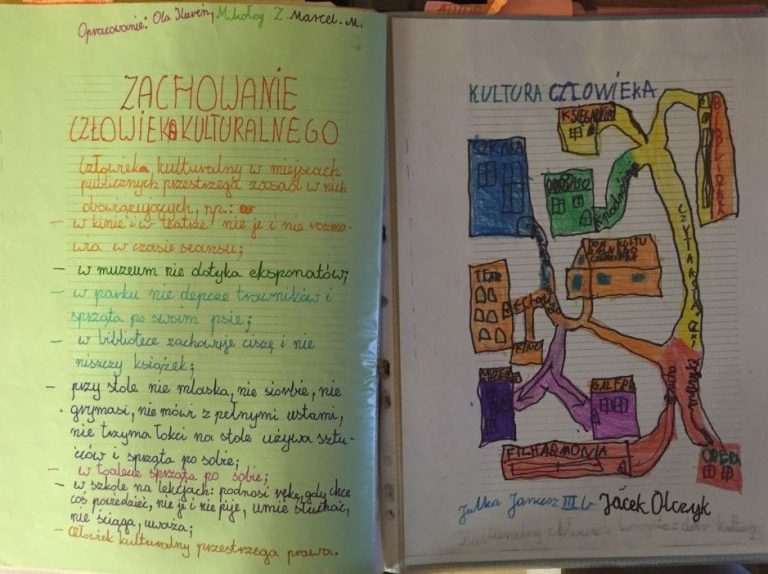 Opracowanie: Ola Mikołaj Z. Marcel. M.
ZACHOWANIE
CZŁOWIEKA KULTURALNEGO
Człowiek kulturalny w miejscach
publicznych przestrzega zasad w nich
obowiązujących, np.:
- w kinie i w teatrze nie je i nie rozma-
wia w czasie seansu;
- w muzeum nie dotyka eksponatów;
- w parku nie depcze trawników i
sprząta po swoim psie;
- w bibliotece zachowuje ciszę i nie
niszczy książek;
- przy stole nie mlaska, nie siorbie, nie
grymasi, nie mówi z pełnymi ustami,
nie trzyma łokci na stole używa sztu-
ćców i sprząta po sobie;
- w toalecie sprząta po sobie;
- w szkole na lekcjach: podnosi rękę, gdy chce
coś powiedzieć, nie je i nie pije, umie słuchać,
nie ściąga, uważa;
- Człowiek kulturalny przestrzega prawa.
KULTURA CZŁOWIEKA
KSIĘGARNIA
BIBLIOTEKA
SZKOŁA
CZYTA KSIĄŻKI
TEATR
KINO
GALERIA
muzyki
FILHARMONIA
OPERA
Julka Janusz III b Jacek Olczyk